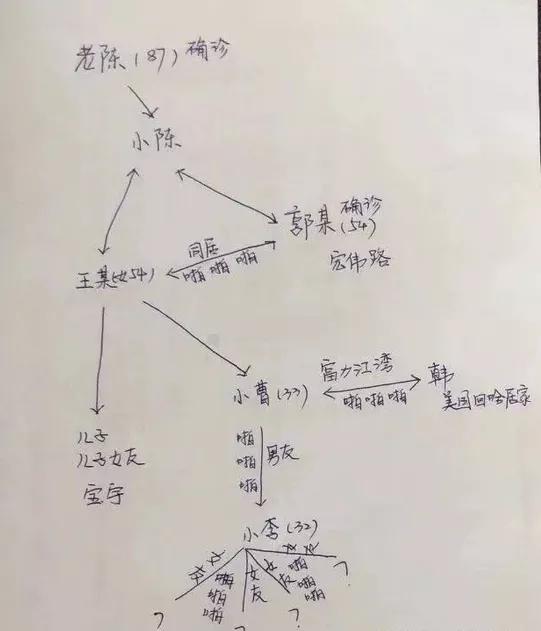 老陈(87)确诊
小陈
郭某 确诊
(54)
宏伟路
同居
啪 啪 啪
王某(女54)
小曹(33)
富力江湾
啪啪啪
韩
美国回哈居家
儿子
儿子女友
宝宇
啪
啪
啪
男友
小李(32)
啪
啪
啪
女
友
女
友
啪
啪
啪
?
?
?
?